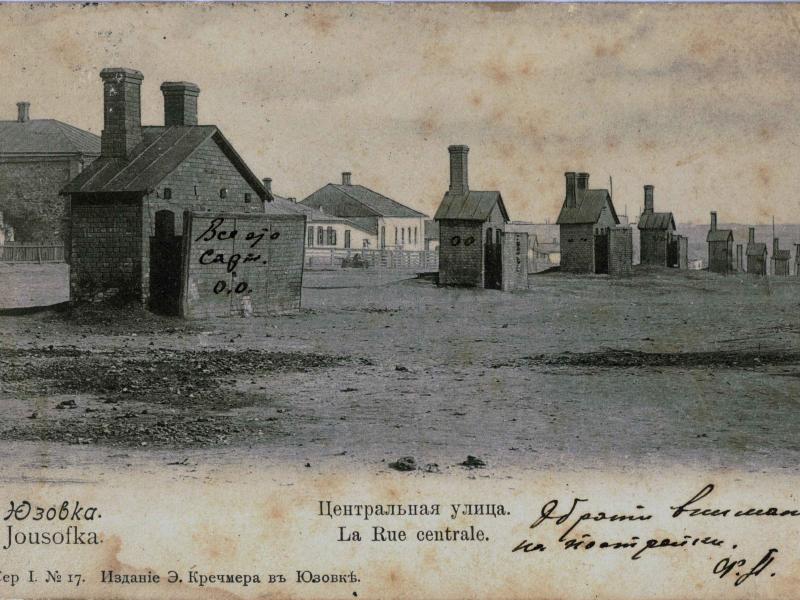 Все это
сартт.
о.о.
оо
Юзовка.
Jousofka.
Центральная улица.
La Rue centrale.
Обрати внимани
на постройки.
Сер I. № 17. Изданіе Э. Кречмера въ Юзовкѣ.